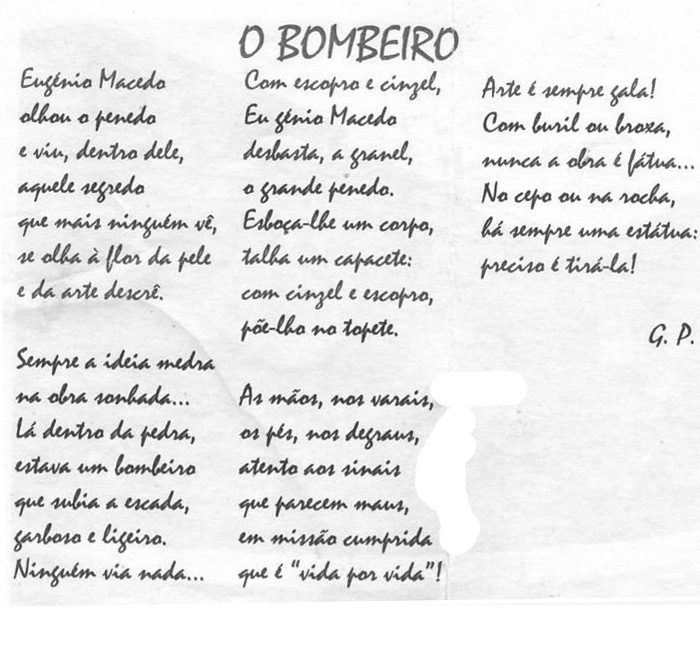 O BOMBEIRO
Eugénio Macedo
olhou o penedo
e viu, dentro dele,
aquele segredo
que mais ninguém vê,
se olha à flor da pele
e da arte descrê.
Sempre a ideia medra
na obra sonhada...
Lá dentro da pedra,
estava um bombeiro
que subia a escada,
garboso e ligeiro.
Ninguém via nada...
Com escopro e cinzel,
Eu génio Macedo
desbasta, a granel,
o grande penedo.
Esboça-lhe um corpo,
talha um capacete:
com cinzel e escopro,
põe-lho no topete.
As mãos, nos varais,
os pés, nos degraus,
atento aos sinais
que parecem maus,
em missão cumprida
que é "vida por vida"!
Arte é sempre gala!
Com buril ou broxa,
nunca a obra é fátua...
No cepo ou na rocha,
há sempre uma estátua:
preciso é tirá-la!
G. P.